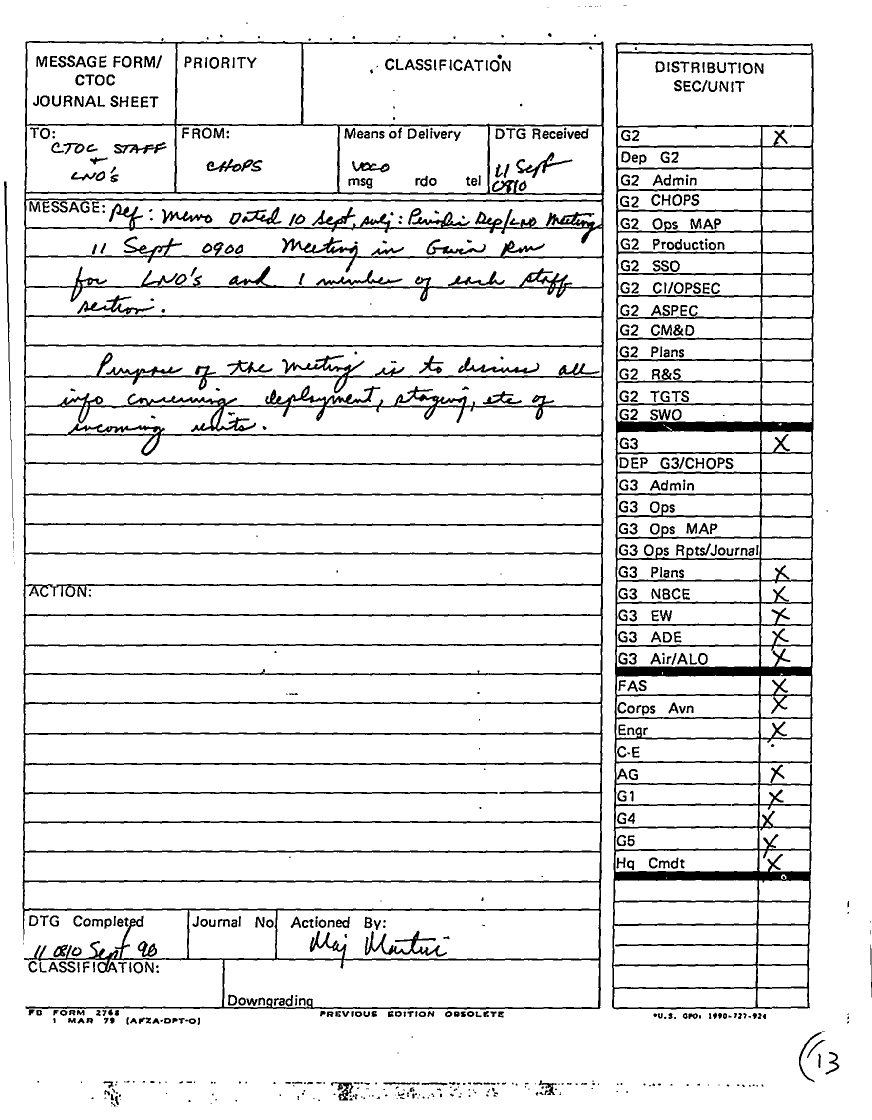 MESSAGE FORM/
CTOC
JOURNAL SHEET
PRIORITY
CLASSIFICATION
TO:
CTOC STAFF
+
LNO'S
FROM:
CHOPS
Means of Delivery
VOCO
msg rdo tel
DTG Received
11 Sept
0810
MESSAGE: Ref: Memo Dated 10 Sept, subj: Periodic Dep/LNO Meeting
11 Sept 0900 Meeting in Gavin Rm
for LNO's and 1 member of each staff
section.
Purpose of the meeting is to discuss all
info concerning deployment, staging, etc of
incoming units.
ACTION:
DTG Completed
11 0810 Sept 90
Journal No
Actioned By:
Maj
CLASSIFICATION:
Downgrading
FB FORM 2768
1 MAR 79 (AFZA-DPT-O)
PREVIOUS EDITION OBSOLETE
DISTRIBUTION
SEC/UNIT
G2 X
Dep G2
G2 Admin
G2 CHOPS
G2 Ops MAP
G2 Production
G2 SSO
G2 CI/OPSEC
G2 ASPEC
G2 CM&D
G2 Plans
G2 R&S
G2 TGTS
G2 SWO
G3 X
DEP G3/CHOPS
G3 Admin
G3 Ops
G3 Ops MAP
G3 Ops Rpts/Journal
G3 Plans X
G3 NBCE X
G3 EW X
G3 ADE X
G3 Air/ALO X
FAS X
Corps Avn X
Engr X
C-E
AG X
G1 X
G4 X
G5 X
Hq Cmdt X
*U.S. GPO: 1990-727-924
13